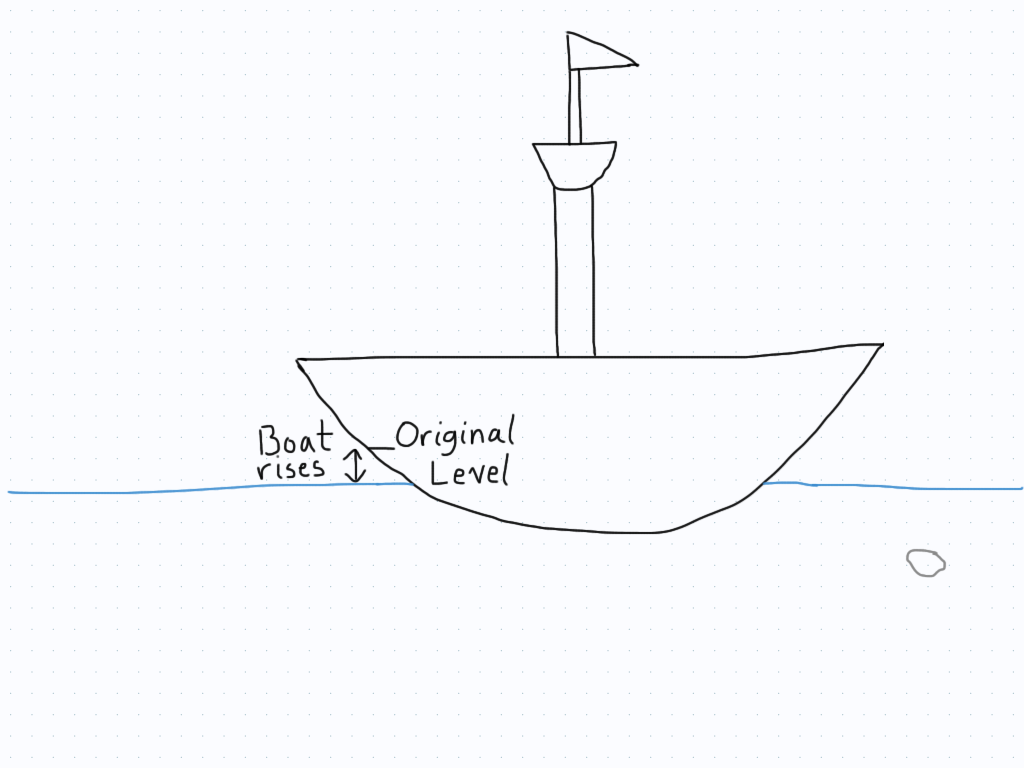 Boat
rises
Original
Level